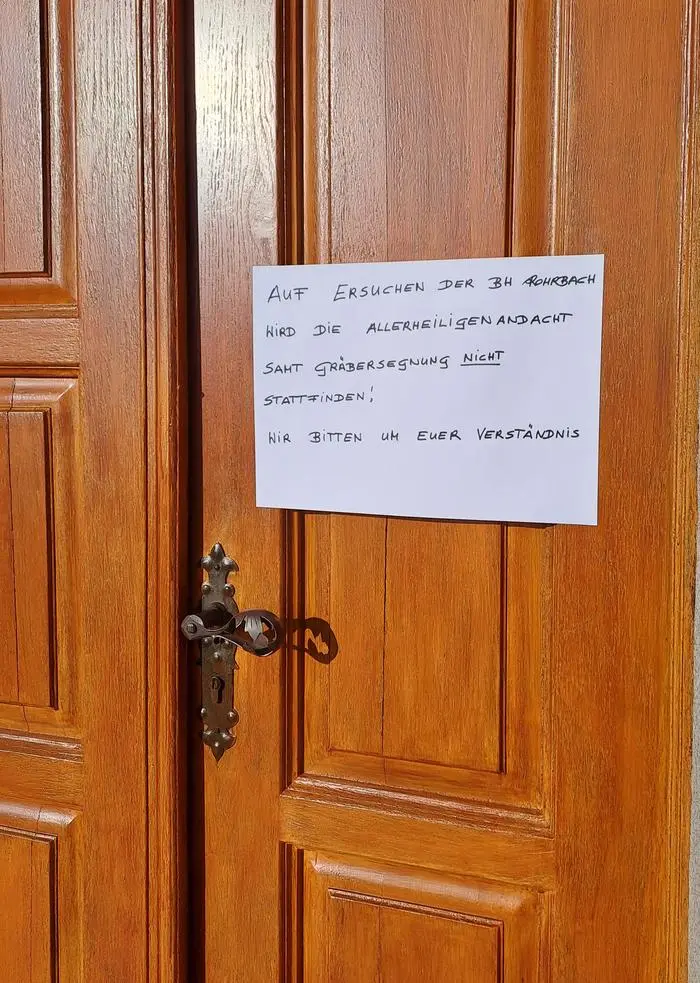 AUF ERSUCHEN DER BH ROHRBACH
WIRD DIE ALLERHEILIGENANDACHT
SAMT GRÄBERSEGNUNG NICHT
STATTFINDEN!
WIR BITTEN UM EUER VERSTÄNDNIS